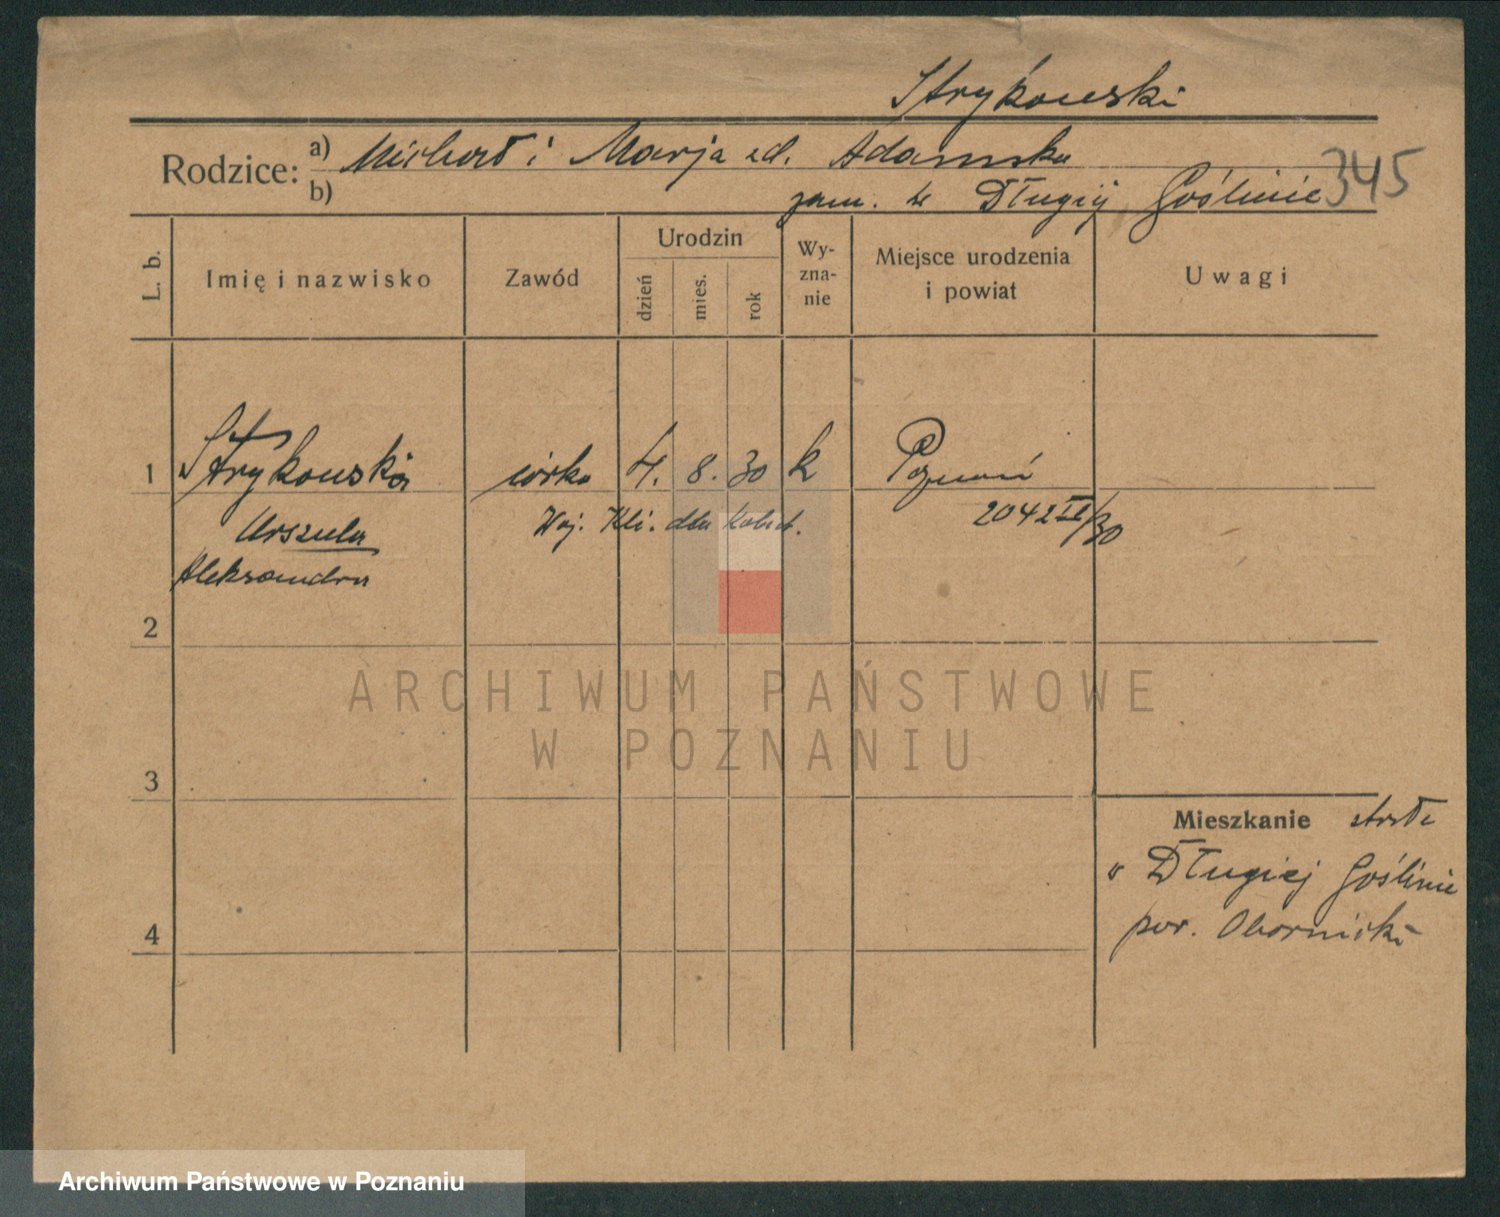 Strykowski
Rodzice: a) Michał i Marja zd. Adamska
b) zam. w Długiej Goślinie 345
L. b. Imię i nazwisko Zawód Urodzin dzień mies. rok Wy-zna-nie Miejsce urodzenia i powiat Uwagi
1 Strykowska córka 4. 8. 30 k Poznań
Urszula Woj. Kli. dla Kobiet. 2042 II/30
Aleksandra
2
ARCHIWUM PAŃSTWOWE
W POZNANIU
3
Mieszkanie stale
w Długiej Goślinie
4 pow. Obornicki
Archiwum Państwowe w Poznaniu